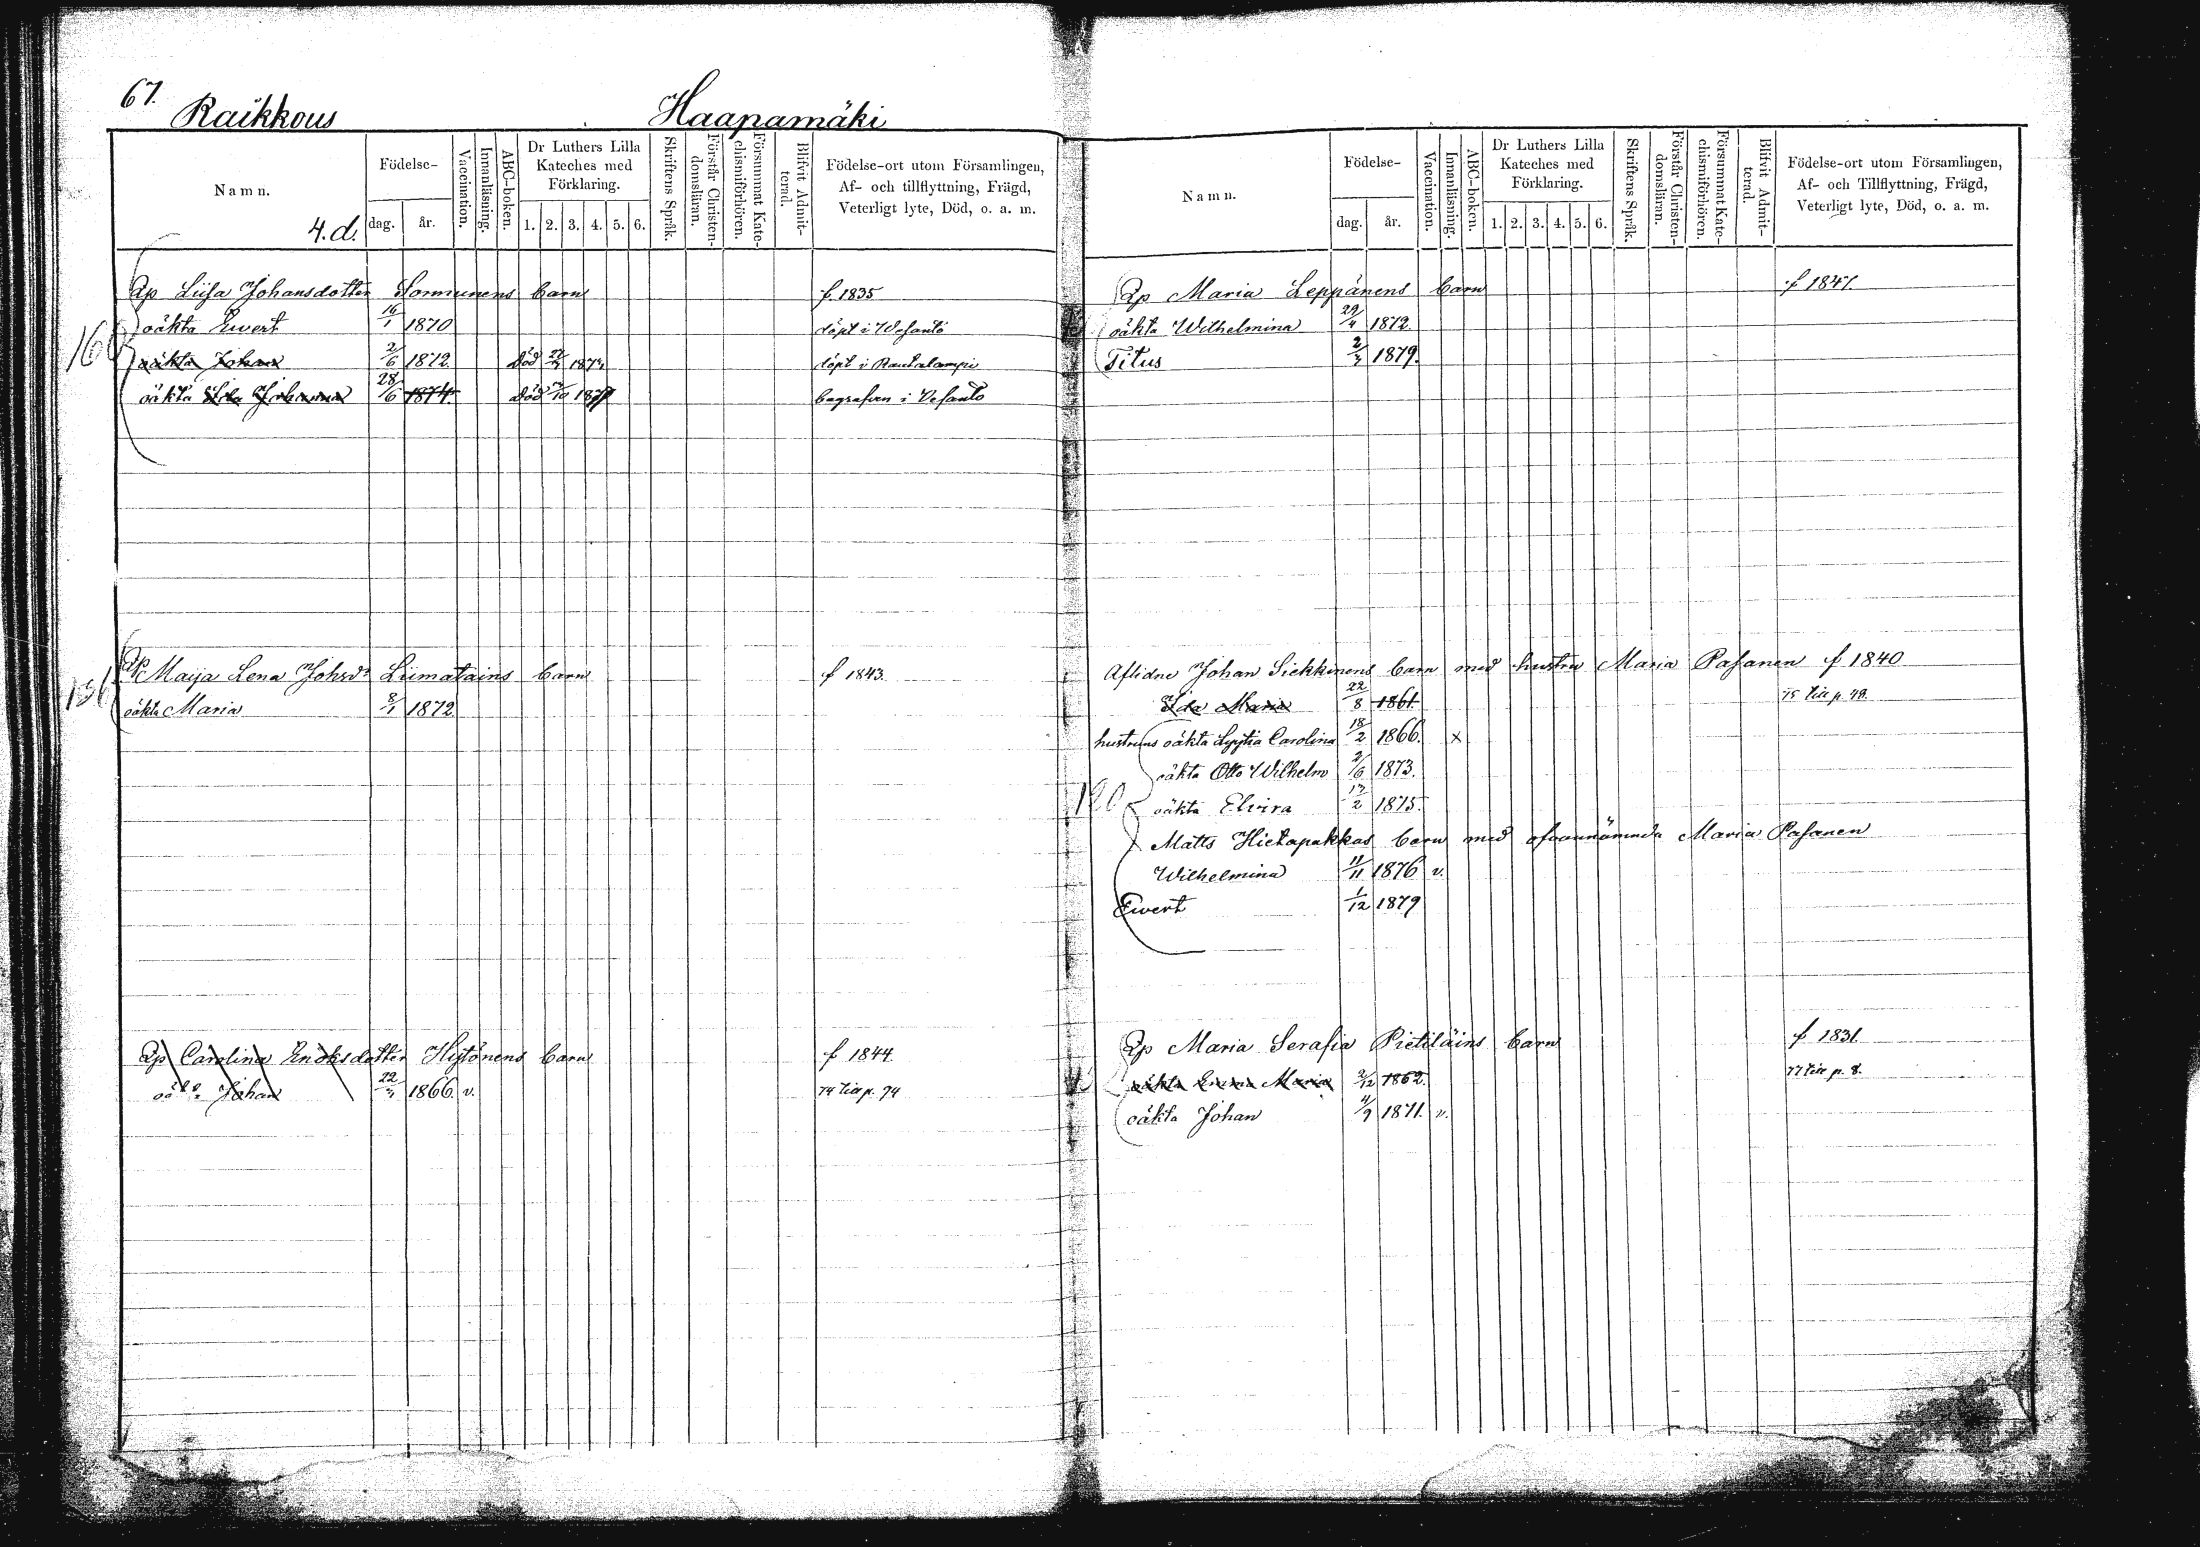 67.
Raikkous Haapamäki
Namn.
4.d.
Födelse-
dag. år.
Vaccination.
Innanläsning.
ABC-boken.
Dr Luthers Lilla
Kateches med
Förklaring.
1. 2. 3. 4. 5. 6.
Skriftens Språk.
Förstår Christen-
domsläran.
Försummat Kate-
chismiförhören.
Blifvit Admit-
terad.
Födelse-ort utom Församlingen,
Af- och tillflyttning, Frägd,
Veterligt lyte, Död, o. a. m.
Qp Liisa Johansdotter Sormunens barn f. 1835
oäkta Ewert 16/1 1870 döpt i Wesanto
oäkta Johan 2/6 1872 död döpt i Rautalampi
oäkta Ida Johanna 28/6 1874. död begrafven i Vesanto
Qp Maija Lena Johsdr Liimatains barn f 1843
oäkta Maria 8/1 1872
Qp Carolina Enoksdotter Hytönens barn f 1844
Johan 1866. v. 74 till p. 74
Namn.
Födelse-
dag. år.
Vaccination.
Innanläsning.
ABC-boken.
Dr Luthers Lilla
Kateches med
Förklaring.
1. 2. 3. 4. 5. 6.
Skriftens Språk.
Förstår Christen-
domsläran.
Försummat Kate-
chismiförhören.
Blifvit Admit-
terad.
Födelse-ort utom Församlingen,
Af- och Tillflyttning, Frägd,
Veterligt lyte, Död, o. a. m.
Qp Maria Leppänens barn f 1847.
oäkta Wilhelmina 29/4 1872.
Titus 1879.
Aflidne Johan Siekkinens barn med hustru Maria Pasanen f 1840
Ida Maria 22/8 1861. 75 till p. 49.
hustruns oäkta Lyytia Carolina 18/2 1866. x
oäkta Otto Wilhelm 2/6 1873.
120 oäkta Elvira 17/2 1875.
Matts Hietapakkas barn med ofvannämnda Maria Pasanen
Wilhelmina 11/11 1876 v.
Ewert 1/12 1879
Qp Maria Serafia Pietiläins barn f 1831.
oäkta Emma Maria 2/12 1862. 77 till p. 8.
oäkta Johan 4/9 1871. v.